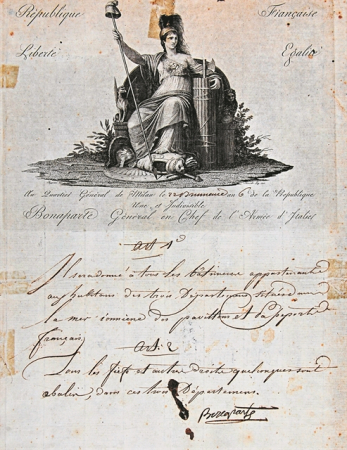 République Française
Liberté Egalité
Au Quartier Général de Milan le 22 Brumaire an 6e de la République
Une et Indivisible
Bonaparte Général en Chef de l'Armée d'Italie
art 1
Il sera donné à tous les bâtimens appartenants
aux habitans des trois Départemens
la mer ionienne des pavillons et
français
art. 2
Tous les fiefs et autres droits quelconques sont
abolis, dans ces trois Départemens.
Bonaparte